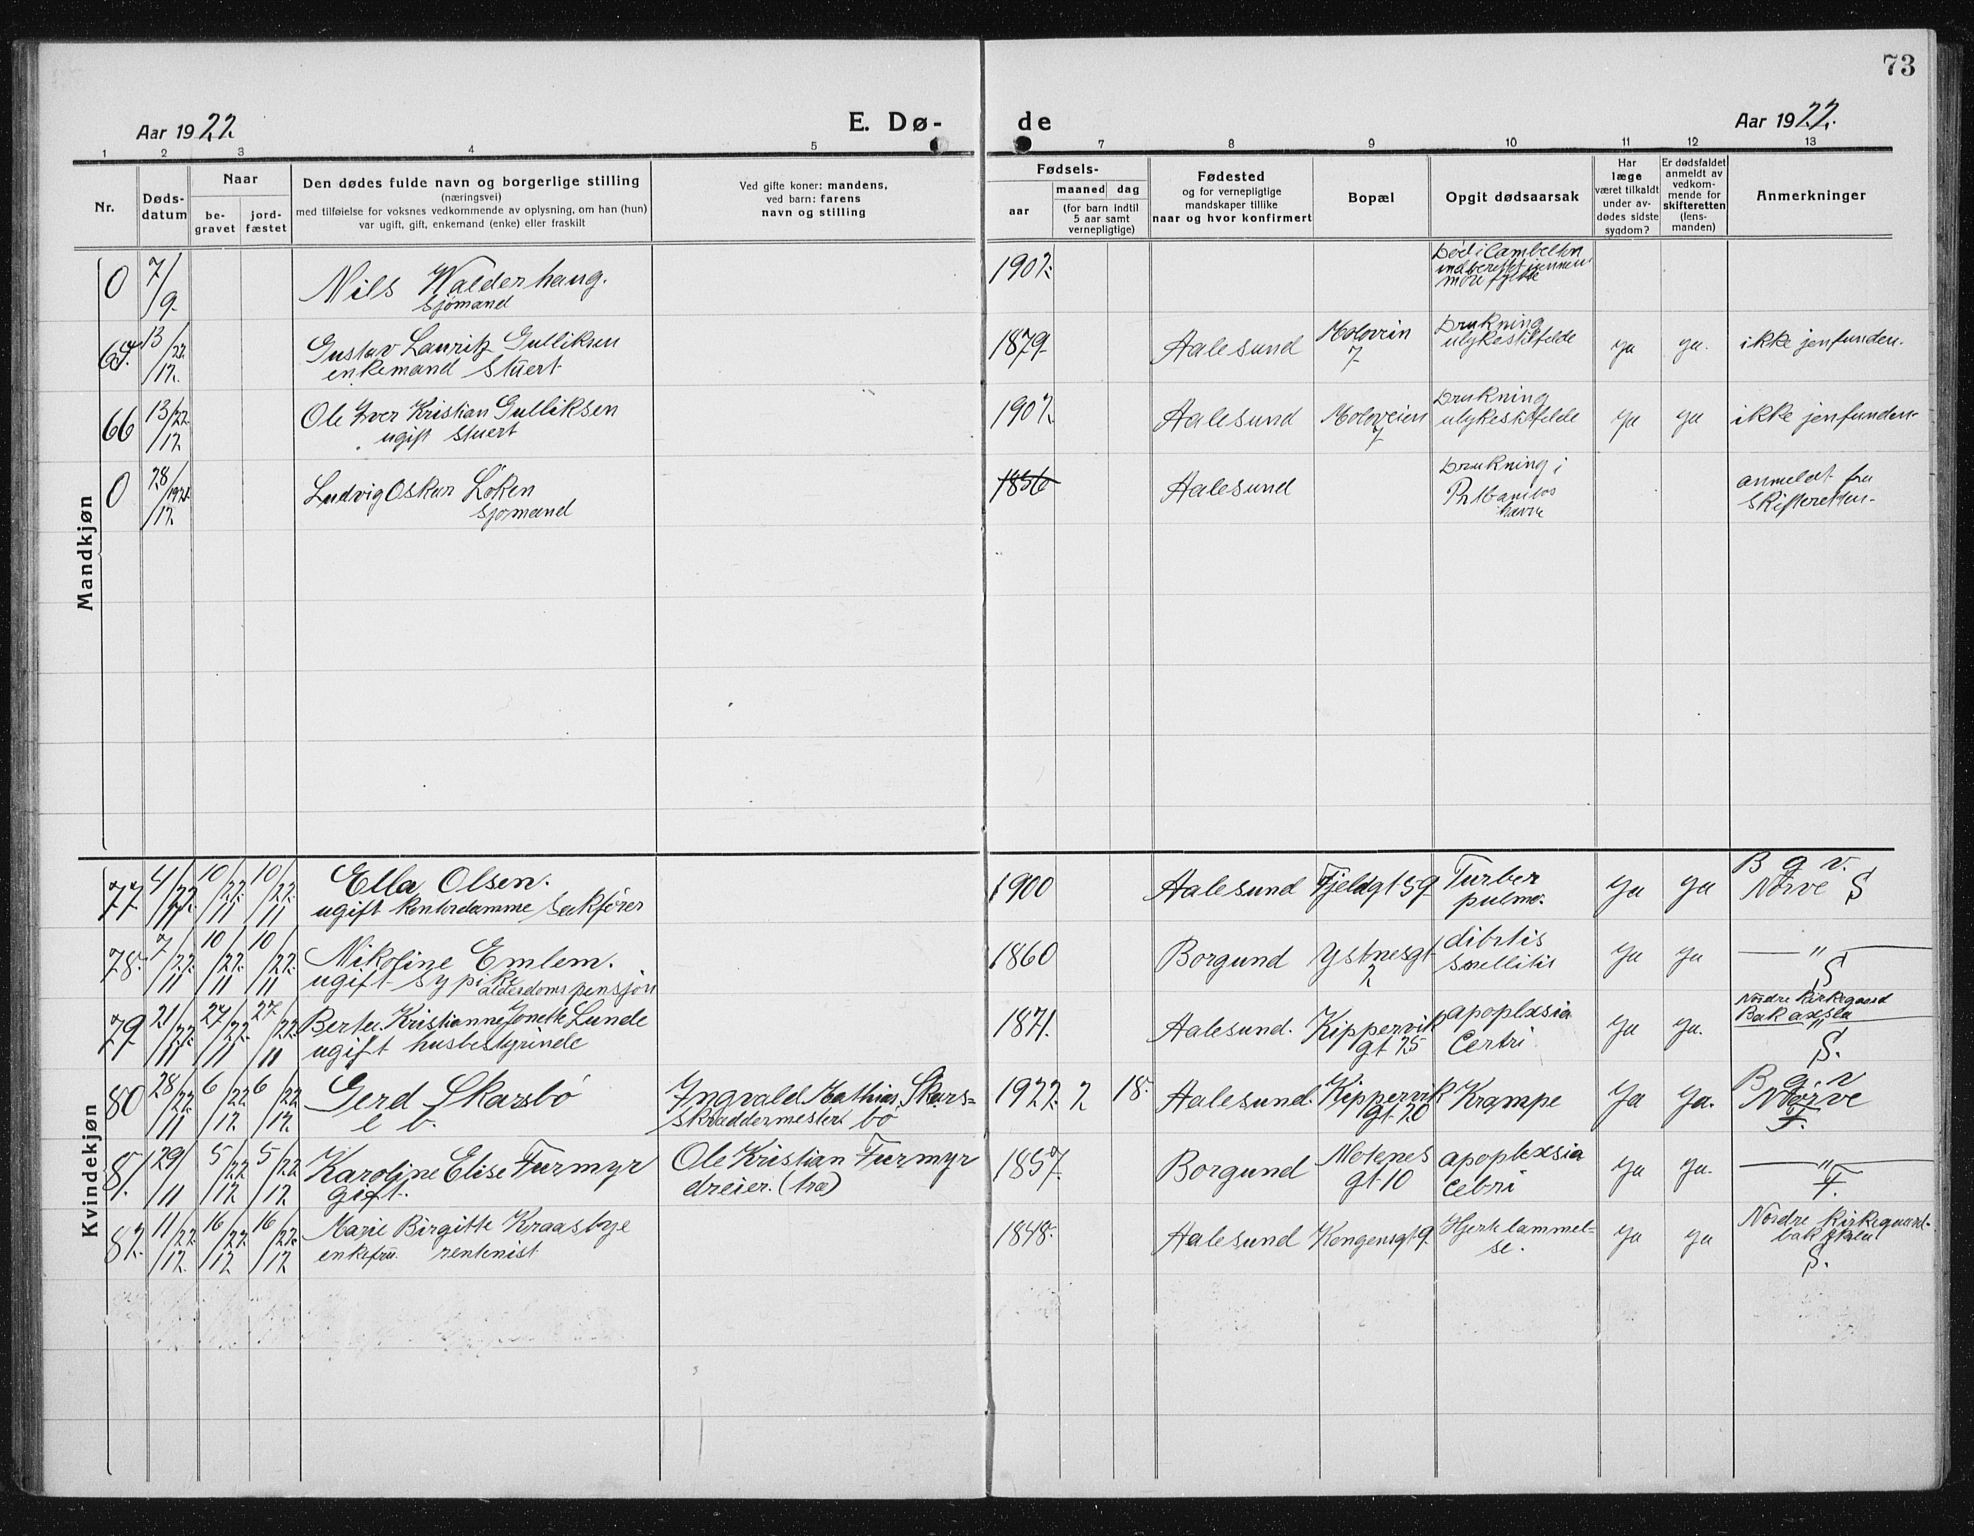 73
Aar 1922
E. Dø-
de
Aar 1922.
1 2 3 4 5
7 8 9 10 11 12 13
Nr.
Døds-
datum
Naar
be-
gravet
jord-
fæstet
Den dødes fulde navn og borgerlige stilling
(næringsvei)
med tilføielse for voksnes vedkommende av oplysning, om han (hun)
var ugift, gift, enkemand (enke) eller fraskilt
Ved gifte koner: mandens,
ved barn: farens
navn og stilling
Fødsels-
aar
maaned dag
(for barn indtil
5 aar samt
vernepligtige)
Fødested
og for vernepligtige
mandskaper tillike
naar og hvor konfirmert
Bopæl
Opgit dødsaarsak
Har
læge
været tilkaldt
under av-
dødes sidste
sygdom?
Er dødsfaldet
anmeldt av
vedkom-
mende for
skifteretten
(lens-
manden)
Anmerkninger
Mandkjøn
0 7/9 Nils Walderhaug.
sjømand
1902.
Død i Cambelton
indberettet gjennem
møre fylke
65. 13/22/12. Gustav Lauritz Gulliksen
enkemand Stuert
1879. Aalesund Moloveien
7
Drukning
ulykestilfelde
ja ja. ikke jenfunden.
66 13/22/12 Ole Iver Kristian Gulliksen
ugift Stuert
1902 Aalesund Moloveien
7
Drukning
ulykestilfelde
ja ja ikke jenfunden.
0 28/1921/12 Ludvig Oskar Løken
sjømand
1856 Aalesund
Drukning i
havne
anmeldt fra
Skifteretten.
Kvindekjøn
77 4/22/11 10/22/11 10/22/11 Ella Olsen.
ugift kontordamme Sakfører
1900 Aalesund Fjeldgt 59 Turber
pulmo.
ja ja B g v.
Nørve S
78. 7/22/11 10/22/11 10/22/11 Nikoline Emlem.
ugift sy pike
alderdoms pensjon
1860 Borgund Ystnesgt
2
dibitis
ja ja — " —
S
79 21/22/11 27/22/11 27/22/11 Bertea Kristianne Jonette Lunde
ugift husbestyrinde
1871. Aalesund. Kippervik
gt 25
apoplæsia
Certri
ja ja. Nordre kirkegaard
Bak axsla
"
S.
80 28/22/11 6/22/12 6/22/12 Gerd Skarsbø
e b.
Ingvald Mathias Skars-
skræddermester bø
1922. 2 18. Aalesund. Kippervik
gt 20
Krampe
Ja Ja. B g. v
Nørve
F.
81. 29/11 5/22/12 5/22/12 Karoline Elise Furmyr
gift.
Ole Kristian Furmyr
dreier. (træ)
1857. Borgund Notenes
gt 10
apoplæsia
Cebri
ja ja. — " —
F.
82. 11/22/12 16/22/12 16/22/12 Marie Birgitte Kraasbye
enkefru. rentenist
1848. Aalesund Kongensgt 9. Hjerte lammel-
se.
ja ja Nordre kirkegaard.
bak axla
S.